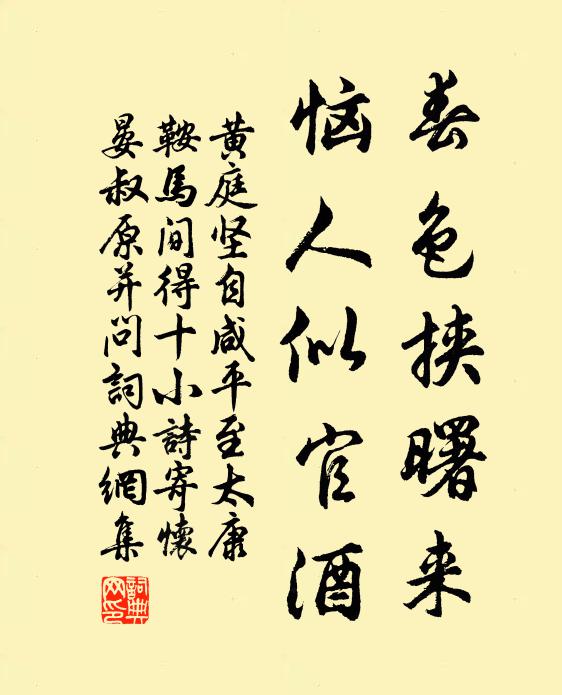 春色挟曙来
恼人似官酒
黄庭坚自咸平至太康
鞍馬间得十小詩寄懷
晏叔原并问詞典網集
詞典
网印